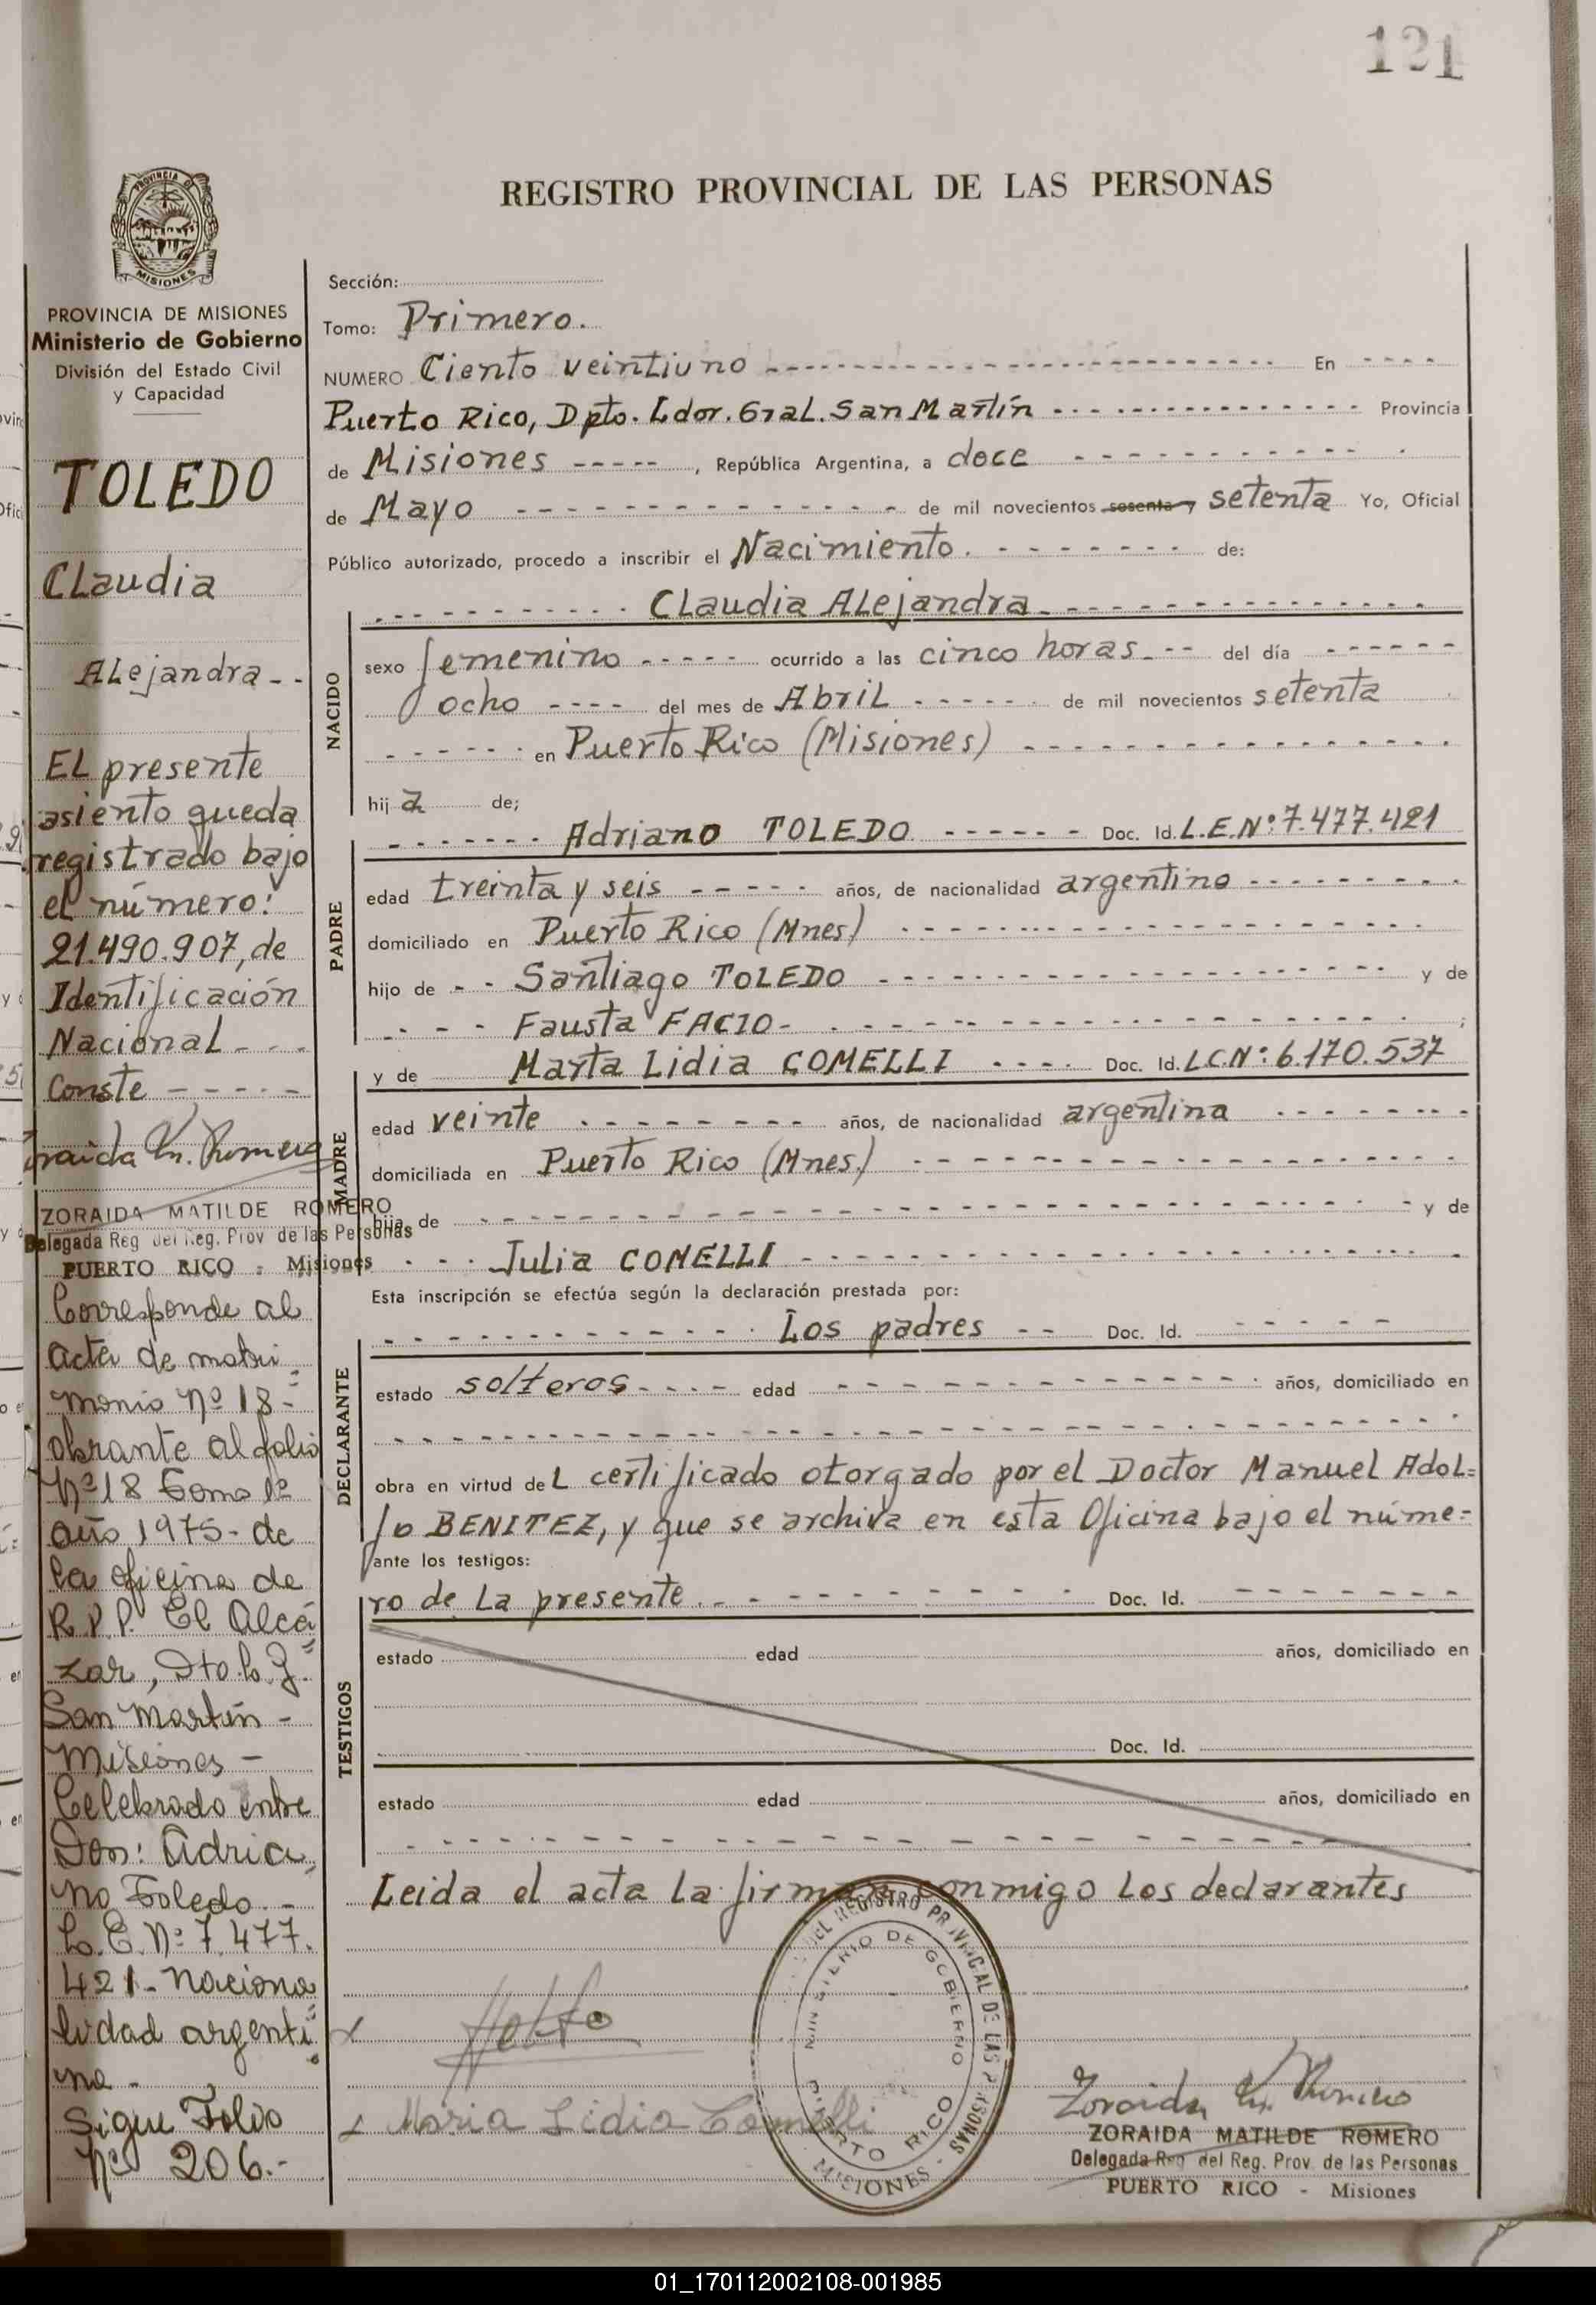 121
REGISTRO PROVINCIAL DE LAS PERSONAS
PROVINCIA DE
MISIONES
PROVINCIA DE MISIONES
Ministerio de Gobierno
División del Estado Civil
y Capacidad
TOLEDO
Claudia
Alejandra - -
El presente
asiento queda
registrado bajo
el número:
21.490.907, de
Identificación
Nacional - - -
Conste - - - - -
Zoraida M. Romero
ZORAIDA MATILDE ROMERO
Delegada Reg del Reg. Prov de las Personas
PUERTO RICO - Misiones
Corresponde al
acta de matri
monio Nº 18-
obrante al folio
Nº 18 Tomo 1º
año 1975- de
la oficina de
R.P.P. El Alcá
zar, Dto. L. G.
San Martín -
Misiones -
Celebrado entre
Don: Adria
no Toledo. -
L.E. Nº 7.477.
421- naciona
lidad argenti
na -
Sigue Folio
Nº 206.-
Sección:
Tomo: Primero.
NUMERO Ciento veintiuno - - - - En - - - -
Puerto Rico, Dpto. Ldor. Gral. San Martín - - - - Provincia
de Misiones - - - - - , República Argentina, a doce - - - -
de Mayo - - - - de mil novecientos sesenta y setenta Yo, Oficial
Público autorizado, procedo a inscribir el Nacimiento. - - - - de:
- - - - Claudia Alejandra - - - -
NACIDO
sexo femenino - - - - - ocurrido a las cinco horas. - - del día - - - - - -
ocho - - - - del mes de Abril - - - - - de mil novecientos setenta
- - - - - en Puerto Rico (Misiones) - - - -
hij a de;
- - - - - - Adriano TOLEDO - - - - - Doc. Id. L.E.Nº: 7.477.421
PADRE
edad treinta y seis - - - - - años, de nacionalidad argentino - - - -
domiciliado en Puerto Rico (Mnes) - - - -
hijo de - - Santiago TOLEDO - - - - y de
- - - - Fausta FACIO - - - - ;
y de Marta Lidia COMELLI - - - - Doc. Id. L.C.Nº: 6.170.537
MADRE
edad veinte - - - - años, de nacionalidad argentina - - - -
domiciliada en Puerto Rico (Mnes.) - - - -
hija de - - - - y de
- - - Julia COMELLI - - - -
Esta inscripción se efectúa según la declaración prestada por:
- - - - Los padres - - Doc. Id. - - - - -
DECLARANTE
estado solteros - - - - edad - - - - años, domiciliado en
- - - -
obra en virtud de L certificado otorgado por el Doctor Manuel Adol=
fo BENITEZ, y que se archiva en esta Oficina bajo el núme=
ante los testigos:
ro de la presente. - - - - Doc. Id. - - - -
TESTIGOS
estado edad años, domiciliado en
Doc. Id.
estado edad años, domiciliado en
- - - -
Leida el acta la firman conmigo los declarantes
DEL REGISTRO PROVINCIAL DE LAS PERSONAS
MINISTERIO DE GOBIERNO
PUERTO RICO
MISIONES -
Maria Lidia Comelli
Zoraida M. Romero
ZORAIDA MATILDE ROMERO
Delegada Reg del Reg. Prov. de las Personas
PUERTO RICO - Misiones
01_170112002108-001985